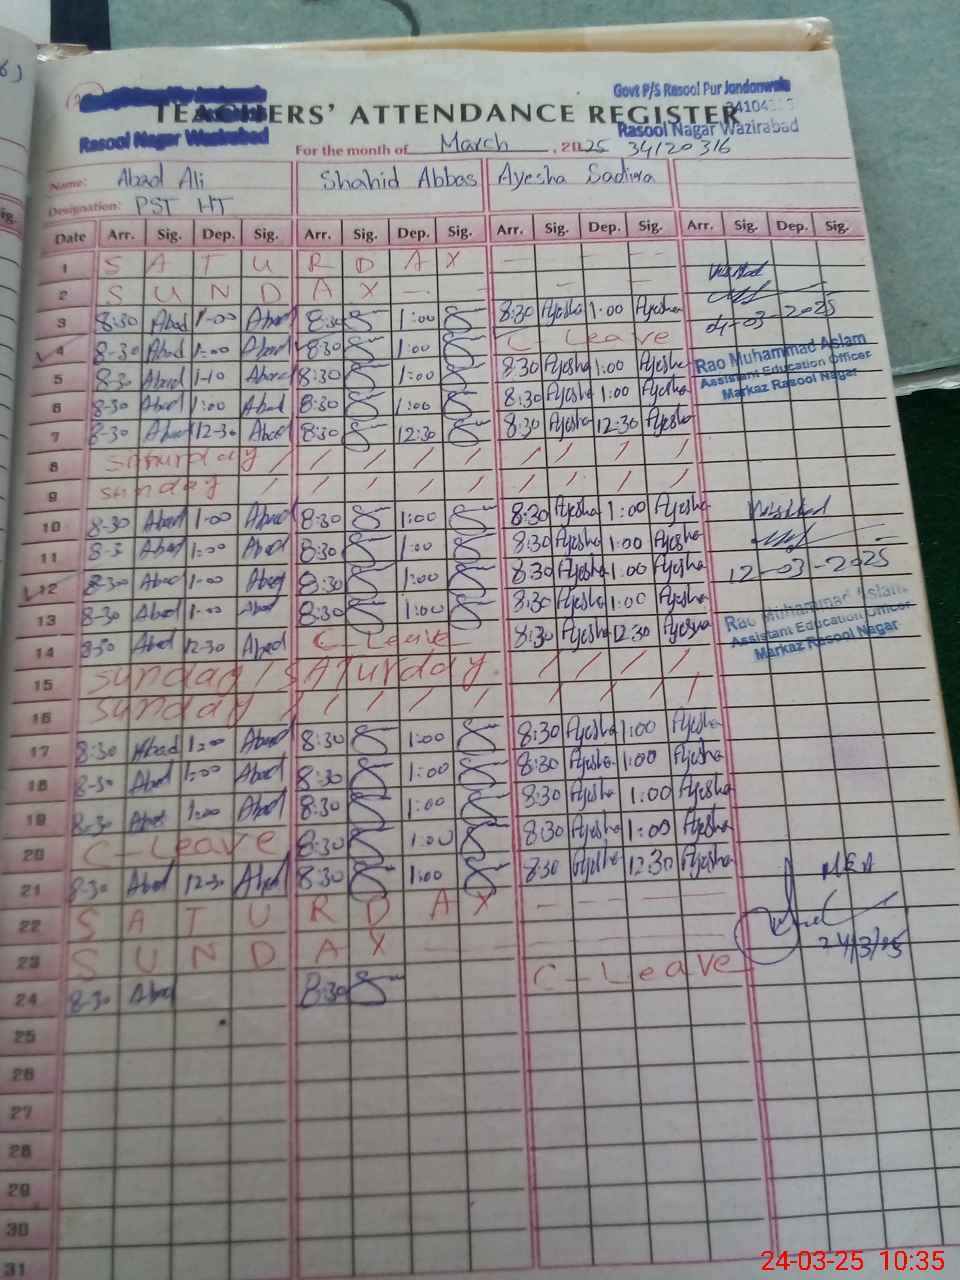 TEACHERS' ATTENDANCE REGISTER
Govt P/S Rasool Pur Jandanwala
Rasool Nagar Wazirabad
Rasool Nagar Wazirabad
For the month of March, 2025 34120316
Name: Abad Ali Shahid Abbas Ayesha Sadiqa
Designation: PST HT
Date Arr. Sig. Dep. Sig. Arr. Sig. Dep. Sig. Arr. Sig. Dep. Sig. Arr. Sig. Dep. Sig.
1 S A T U R D A Y
2 S U N D A Y
3 8:30 Abad 1-00 Abad 8:30 1:00 8:30 Ayesha 1:00 Ayesha
4 8-30 Abad 1:00 Abad 8:30 1:00 C - Leave
5 8-30 Abad 1-10 Abad 8:30 1:00 8:30 Ayesha 1:00 Ayesha
6 8-30 Abad 1:00 Abad 8:30 1:00 8:30 Ayesha 1:00 Ayesha
7 8-30 Abad 12-30 Abad 8:30 12:30 8:30 Ayesha 12:30 Ayesha
8 Saturday
9 sunday
10 8-30 Abad 1-00 Abad 8:30 1:00 8:30 Ayesha 1:00 Ayesha
11 8-3 Abad 1:00 Abad 8:30 1:00 8:30 Ayesha 1:00 Ayesha
12 8-30 Abad 1-00 Abad 8:30 1:00 8:30 Ayesha 1:00 Ayesha
13 8-30 Abad 1-00 Abad 8:30 1:00 8:30 Ayesha 1:00 Ayesha
14 8:30 Abad 12-30 Abad C - Leave 8:30 Ayesha 12:30 Ayesha
15 sunday / SATurday.
16 sunday
17 8:30 Abad 1:00 Abad 8:30 1:00 8:30 Ayesha 1:00 Ayesha
18 8-30 Abad 1:00 Abad 8:30 1:00 8:30 Ayesha 1:00 Ayesha
19 8-30 Abad 1:00 Abad 8:30 1:00 8:30 Ayesha 1:00 Ayesha
20 C - Leave 8:30 1:00 8:30 Ayesha 1:00 Ayesha
21 8-30 Abad 12-30 Abad 8:30 1:00 8:30 Ayesha 12:30 Ayesha
22 S A T U R D A Y
23 S U N D A Y
24 8-30 Abad 8:30 C - Leave
25
26
27
28
29
30
31
Visited
04-03-2025
Rao Muhammad Aslam
Assistant Education Officer
Markaz Rasool Nagar
Visited
12-03-2025
Rao Muhammad Aslam
Assistant Education Officer
Markaz Rasool Nagar
MEA
24/3/25
24-03-25 10:35